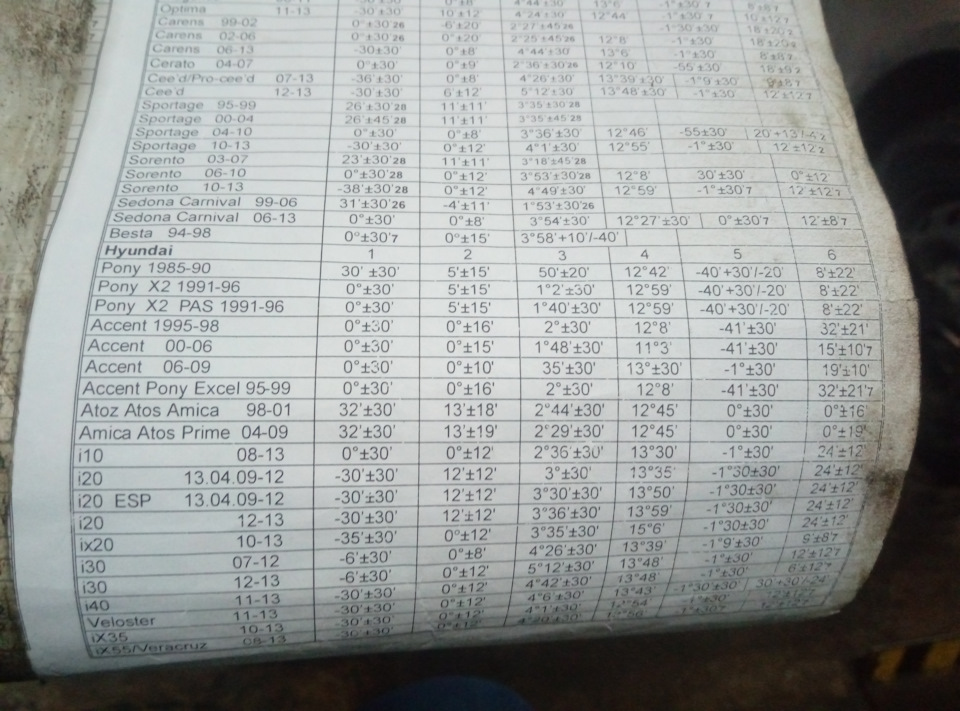 Optima 11-13 -30'±30' 10'±12' 4°24'±30' 12°44' -1°±30'7 10'±12'7
Carens 99-02 0°±30'26 -6'±20' 2°27'±45'26
Carens 02-06 0°±30'26 0°±20' 2°25'±45'26 12°8' -1°±30'
Carens 06-13 -30±30' 0°±8' 4°44'±30' 13°6' -1°±30'
Cerato 04-07 0°±30' 0°±9' 2°36'±30'26 12°10' -55±30'
Cee'd/Pro-cee'd 07-13 -36'±30' 0°±8' 4°26'±30' 13°39'±30' -1°9'±30'
Cee'd 12-13 -30'±30' 6'±12' 5°12'±30' 13°48'±30' -1°±30' 12'±12'7
Sportage 95-99 26'±30'28 11'±11' 3°35'±30'28
Sportage 00-04 26'±45'28 11'±11' 3°35'±45'28
Sportage 04-10 0°±30' 0°±8' 3°36'±30' 12°46' -55±30'
Sportage 10-13 -30'±30' 0°±12' 4°1'±30' 12°55' -1°±30' 12'±12'2
Sorento 03-07 23'±30'28 11'±11' 3°18'±45'28
Sorento 06-10 0°±30'28 0°±12' 3°53'±30'28 12°8' 30'±30' 0°±12'
Sorento 10-13 -38'±30'28 0°±12' 4°49'±30' 12°59' -1°±30'7 12'±12'7
Sedona Carnival 99-06 31'±30'26 -4'±11' 1°53'±30'26
Sedona Carnival 06-13 0°±30' 0°±8' 3°54'±30' 12°27'±30' 0°±30'7 12'±8'7
Besta 94-98 0°±30'7 0°±15' 3°58'+10'/-40'
Hyundai 1 2 3 4 5 6
Pony 1985-90 30' ±30' 5'±15' 50'±20' 12°42' -40'+30'/-20' 8'±22'
Pony X2 1991-96 0°±30' 5'±15' 1°2'±30' 12°59' -40'+30'/-20' 8'±22'
Pony X2 PAS 1991-96 0°±30' 5'±15' 1°40'±30' 12°59' -40'+30'/-20' 8'±22'
Accent 1995-98 0°±30' 0°±16' 2°±30' 12°8' -41'±30' 32'±21'
Accent 00-06 0°±30' 0°±15' 1°48'±30' 11°3' -41'±30' 15'±10'7
Accent 06-09 0°±30' 0°±10' 35'±30' 13°±30' -1°±30' 19'±10'
Accent Pony Excel 95-99 0°±30' 0°±16' 2°±30' 12°8' -41'±30' 32'±21'7
Atoz Atos Amica 98-01 32'±30' 13'±18' 2°44'±30' 12°45' 0°±30' 0°±16'
Amica Atos Prime 04-09 32'±30' 13'±19' 2°29'±30' 12°45' 0°±30' 0°±19'
i10 08-13 0°±30' 0°±12' 2°36'±30' 13°30' -1°±30' 24'±12'
i20 13.04.09-12 -30'±30' 12'±12' 3°±30' 13°35' -1°30±30' 24'±12'
i20 ESP 13.04.09-12 -30'±30' 12'±12' 3°30'±30' 13°50' -1°30±30' 24'±12'
i20 12-13 -30'±30' 12'±12' 3°36'±30' 13°59' -1°30±30' 24'±12'
ix20 10-13 -35'±30' 0°±12' 3°35'±30' 15°6' -1°30±30' 24'±12'
i30 07-12 -6'±30' 0°±8' 4°26'±30' 13°39' -1°9'±30' 9'±8'7
i30 12-13 -6'±30' 0°±12' 5°12'±30' 13°48' -1°±30' 12'±12'7
i40 11-13 -30'±30' 0°±12' 4°42'±30' 13°48' -1°±30' 6'±12'7
Veloster 11-13 -30'±30' 0°±12' 4°6'±30' 13°43' -1°30±30' 30'+30'/-24'
iX35 10-13 -30'±30' 0°±12' 4°1'±30' -1°±30'
iX55/Veracruz 08-13 -30'±30' 0°±12' 4°20'±30'